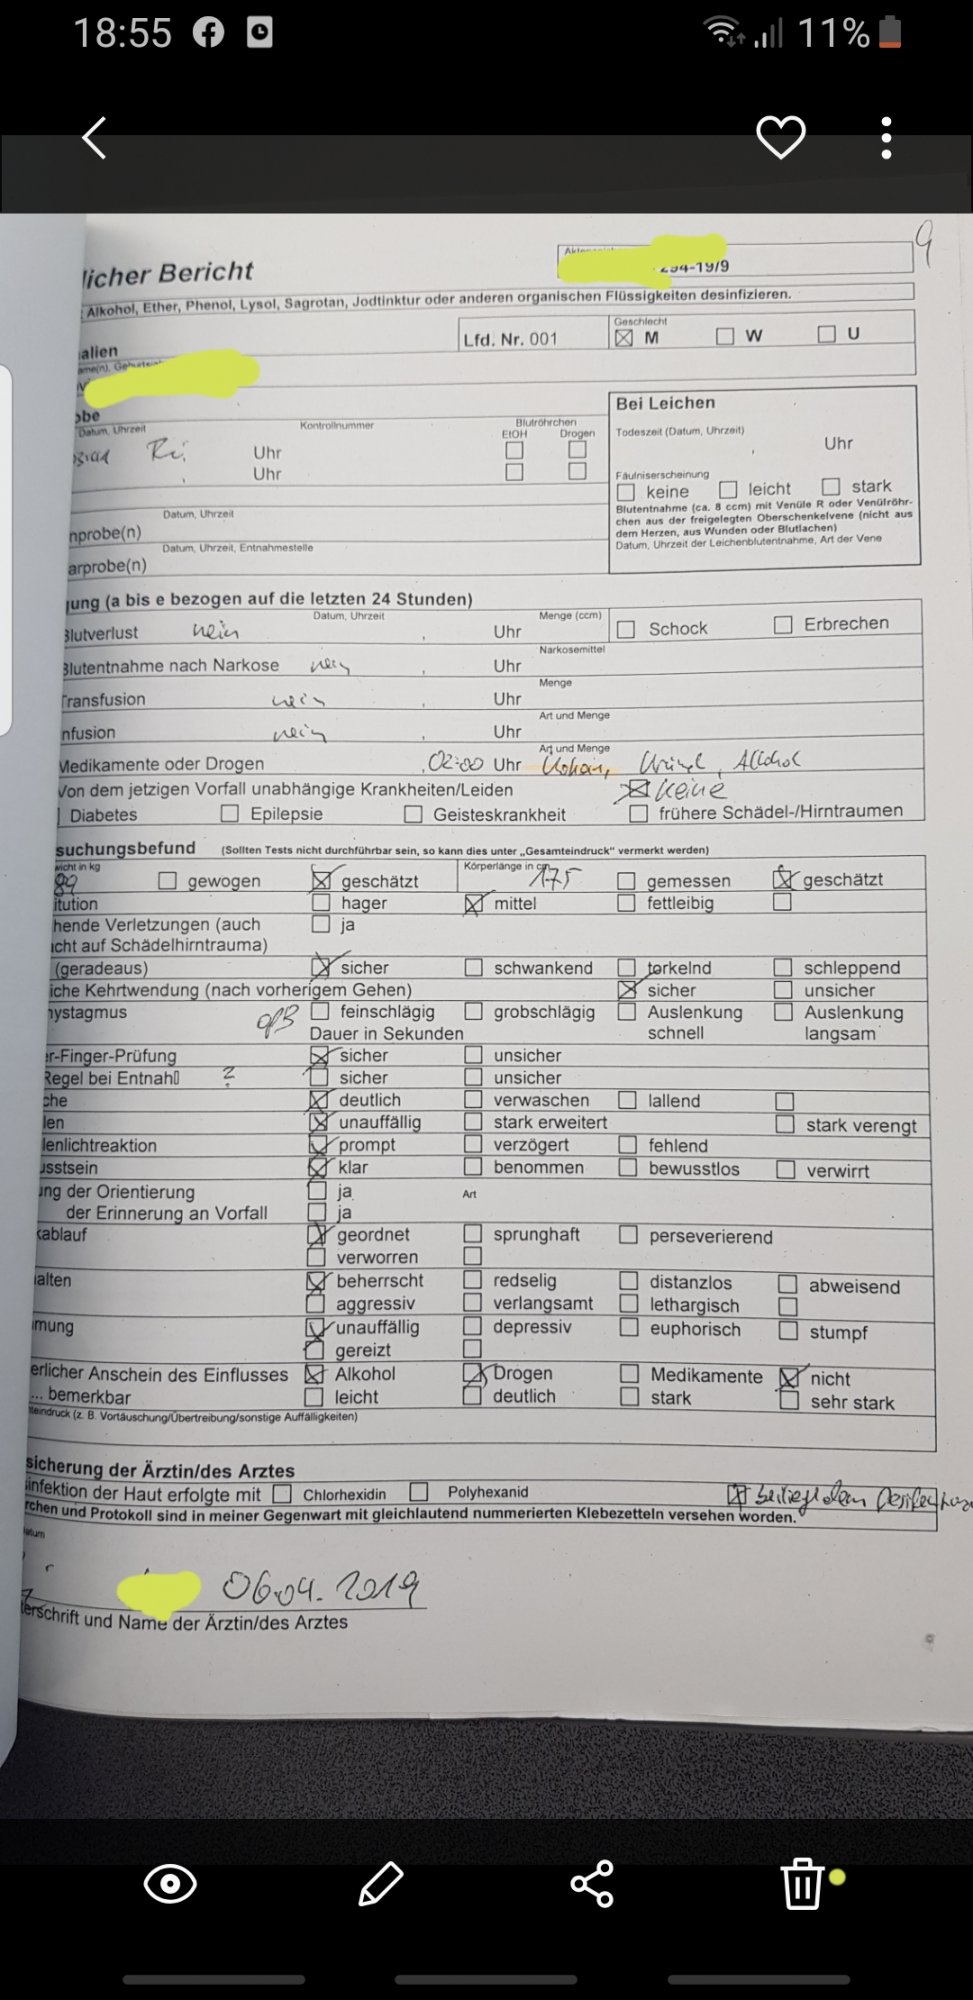 18:55 11%
9
licher Bericht
294-19/9
Alkohol, Ether, Phenol, Lysol, Sagrotan, Jodtinktur oder anderen organischen Flüssigkeiten desinfizieren.
alien
Lfd. Nr. 001
Geschlecht
M W U
obe
Datum, Uhrzeit Kontrollnummer Blutröhrchen
EtOH Drogen
Uhr
Uhr
Bei Leichen
Todeszeit (Datum, Uhrzeit)
, Uhr
Fäulniserscheinung
keine leicht stark
Blutentnahme (ca. 8 ccm) mit Venüle R oder Venülröhr-
chen aus der freigelegten Oberschenkelvene (nicht aus
dem Herzen, aus Wunden oder Blutlachen)
Datum, Uhrzeit der Leichenblutentnahme, Art der Vene
Datum, Uhrzeit
nprobe(n)
Datum, Uhrzeit, Entnahmestelle
arprobe(n)
gung (a bis e bezogen auf die letzten 24 Stunden)
Datum, Uhrzeit Menge (ccm)
Blutverlust nein , Uhr Schock Erbrechen
Narkosemittel
Blutentnahme nach Narkose nein , Uhr
Menge
Transfusion nein , Uhr
Art und Menge
nfusion nein , Uhr
Art und Menge
Medikamente oder Drogen , 02:00 Uhr Kokain, Alkohol
Von dem jetzigen Vorfall unabhängige Krankheiten/Leiden keine
Diabetes Epilepsie Geisteskrankheit frühere Schädel-/Hirntraumen
suchungsbefund (Sollten Tests nicht durchführbar sein, so kann dies unter „Gesamteindruck“ vermerkt werden)
wicht in kg Körperlänge in cm
89 gewogen geschätzt 175 gemessen geschätzt
itution hager mittel fettleibig
hende Verletzungen (auch ja
cht auf Schädelhirntrauma)
(geradeaus) sicher schwankend torkelnd schleppend
iche Kehrtwendung (nach vorherigem Gehen) sicher unsicher
nystagmus feinschlägig grobschlägig Auslenkung Auslenkung
Dauer in Sekunden schnell langsam
er-Finger-Prüfung sicher unsicher
Regel bei Entnah ? sicher unsicher
che deutlich verwaschen lallend
len unauffällig stark erweitert stark verengt
lenlichtreaktion prompt verzögert fehlend
usstsein klar benommen bewusstlos verwirrt
ung der Orientierung ja Art
der Erinnerung an Vorfall ja
kablauf geordnet sprunghaft perseverierend
verworren
alten beherrscht redselig distanzlos abweisend
aggressiv verlangsamt lethargisch
mung unauffällig depressiv euphorisch stumpf
gereizt
erlicher Anschein des Einflusses Alkohol Drogen Medikamente nicht
... bemerkbar leicht deutlich stark sehr stark
teindruck (z. B. Vortäuschung/Übertreibung/sonstige Auffälligkeiten)
sicherung der Ärztin/des Arztes
infektion der Haut erfolgte mit Chlorhexidin Polyhexanid
rchen und Protokoll sind in meiner Gegenwart mit gleichlautend nummerierten Klebezetteln versehen worden.
atum
06.04.2019
terschrift und Name der Ärztin/des Arztes